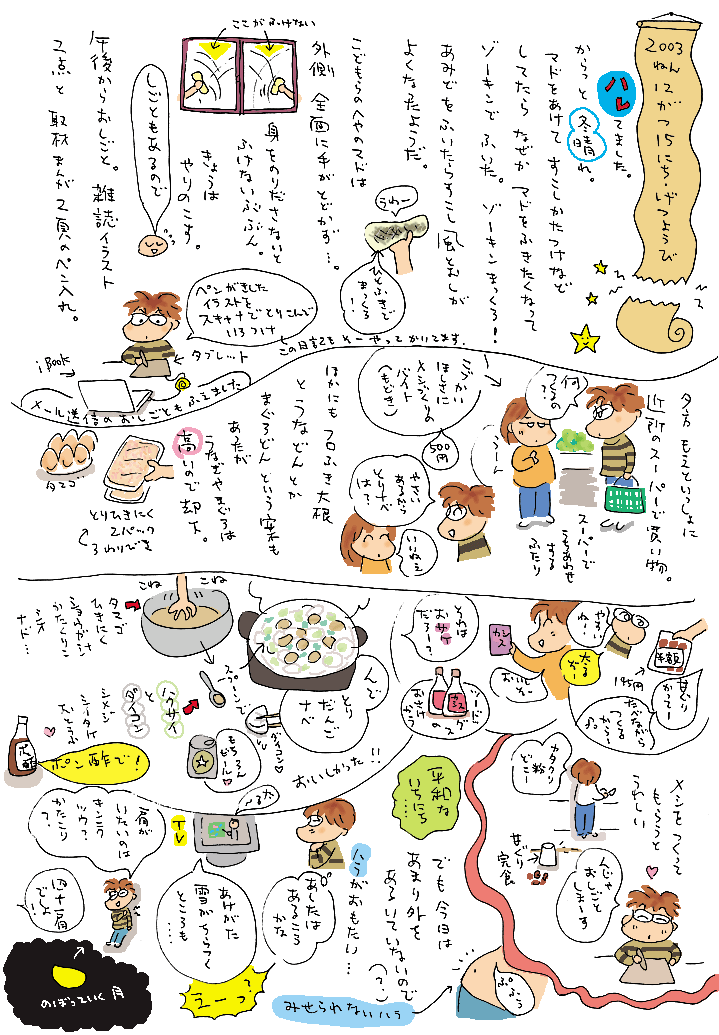 2003
ねん
12
がつ
15にち・げつようび
ハレてました。
からっと 冬晴れ。
マドをあけて すこしかたつけなど
してたら なぜか マドをふきたくなって
ゾーキンで ふいた。 ゾーキンまっくろ!
あみどをふいたらすこし風とおしが
よくなったようだ。
うわー
ひとふきで
まっくろ
!
こどもらのへやのマドは
外側 全面に手がとどかず…。
ここがふけない
身をのりださないと
ふけないぶぶん。
きょうは
やりのこす。
しごともあるので
午後からおしごと。雑誌イラスト
2点と 取材まんが2頁のペン入れ。
ペンがきした
イラストを
スキャナでとりこんで
いろつけ
この日記もそーやってかいてます。
タブレット
iBook
メール送信のおしごともふえました
夕方 もえといっしょに
近所のスーパーで買い物。
何
つくるの
?
うーん
スーパーで
うちあわせ
する
ふたり
こづかい
ほしさに
メシづくりの
バイト
(もどき)
500
円
やさい
あるから
とりナベ
は?
いいねえ
ほかにも フロふき大根
とうなどんとか
まぐろどん という案も
あったが
うなぎやまぐろは
高いので却下。
とりひきにく
2パック
3わりびき
タマゴ
半額
195円
甘ぐり
かてー
たべながら
つくる
からー
♪
やるい
ねい
カシス
おいしー
それは
おサケ
だろー?
ソーダ
カシス
ソーダの
おさけ
かう
んで
とり
だんご
ナベ
スプーンで
ダイコン♡
もちろん
ビール♡
おいしかった!!
こね
こね
タマゴ
ひきにく
ショウガ汁
かたくりこ
シオ
ナド…
ハクサイ
と
ダイコン
シメジ
シータケ
おとうふ
ポン酢
ポン酢で!
メシをつくって
もらうと
うれしい
カタクリ
粉
どこー
甘ぐり
完食
んじゃ
おしごと
しまーす
平和な
いちにち…
でも 今日は
あまり外を
あるいていないので
(?)
ハラがおもたい…
ぷよう
みせられないハラ
あしたは
あるこう
かな
〜るか
テレ
あけがた
雪がちらつく
ところも
……
えーっ?
肩が
いたいのは
キンニク
ツウ?
かたこり
?
四十肩
でしょ!
のぼっていく月